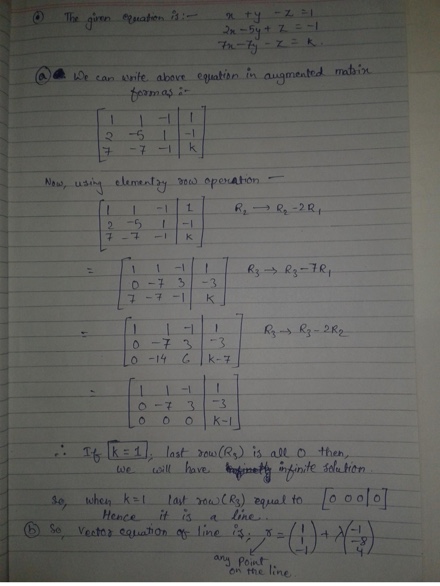 The given equation is:- x + y - z = 1
2x - 5y + z = -1
7x - 7y - z = k.
(a) We can write above equation in augmented matrix
form as :-
[ 1 1 -1 | 1 ]
[ 2 -5 1 | -1 ]
[ 7 -7 -1 | k ]
Now, using elementry row operation —
[ 1 1 -1 | 1 ] R2 → R2 - 2R1
[ 2 -5 1 | -1 ]
[ 7 -7 -1 | k ]
= [ 1 1 -1 | 1 ] R3 → R3 - 7R1
[ 0 -7 3 | -3 ]
[ 7 -7 -1 | k ]
= [ 1 1 -1 | 1 ] R3 → R3 - 2R2
[ 0 -7 3 | -3 ]
[ 0 -14 6 | k-7 ]
= [ 1 1 -1 | 1 ]
[ 0 -7 3 | -3 ]
[ 0 0 0 | k-1 ]
∴ If k = 1, last row (R3) is all 0 then,
we will have infinite solution.
So, when k=1 last row (R3) equal to [0 0 0 | 0]
Hence it is a line.
(b) So, vector equation of line is; r = (1 1 -1) + λ(-1 -8 4)
any point
on the line.